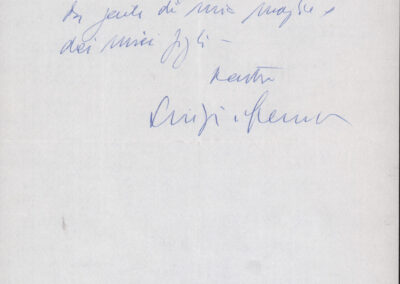 da parte di mia moglie e
dei miei figli –
Luigi